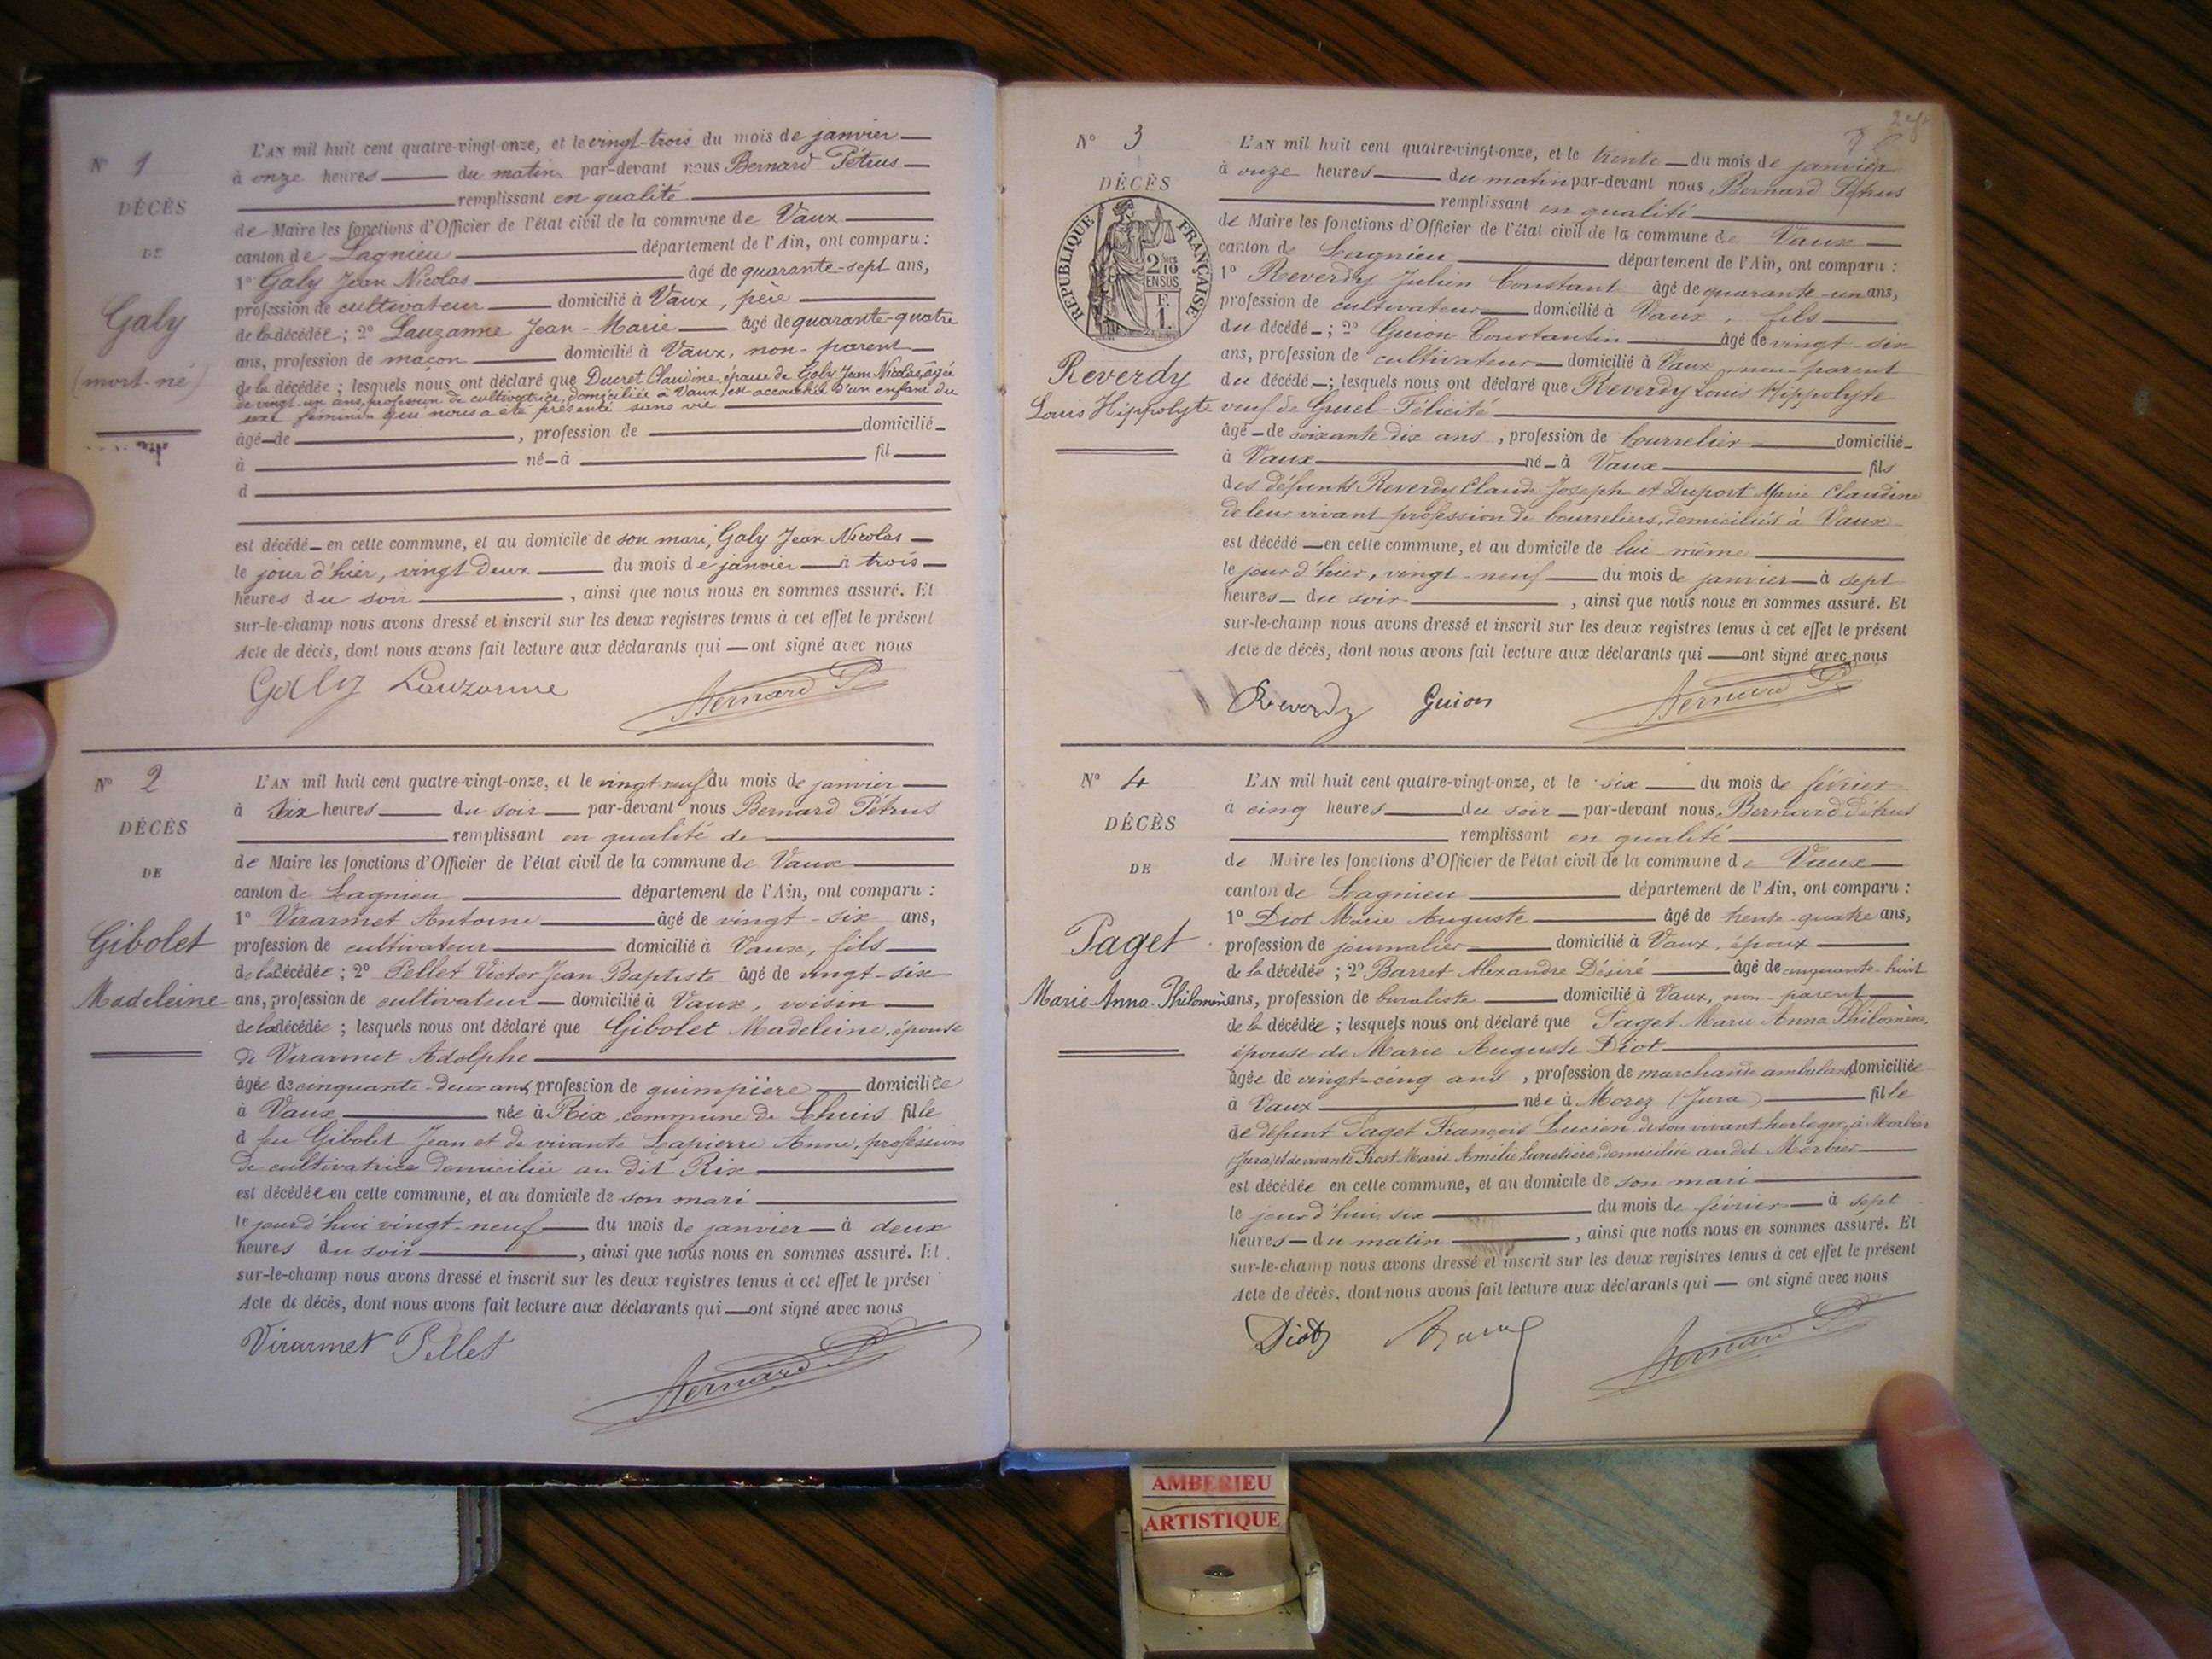 N° 1
DÉCÈS
DE
Galy
(mort-né)
L'AN mil huit cent quatre-vingt-onze, et le vingt-trois du mois de janvier
à onze heures du matin par-devant nous Bernard Pétrus
remplissant en qualité
de Maire les fonctions d'Officier de l'état civil de la commune de Vaux
canton de Lagnieu département de l'Ain, ont comparu :
1° Galy Jean Nicolas âgé de quarante-sept ans,
profession de cultivateur domicilié à Vaux, père
de la décédée ; 2° Lauzanne Jean-Marie âgé de quarante-quatre
ans, profession de maçon domicilié à Vaux, non-parent
de la décédée ; lesquels nous ont déclaré que Ducret Claudine, épouse de Galy Jean Nicolas, âgée
de vingt-un ans, profession de cultivatrice, domiciliée à Vaux, est accouchée d'un enfant du
sexe féminin qui nous a été présenté sans vie
âgé de , profession de domicilié
à né à fil
d
est décédé en cette commune, et au domicile de son mari, Galy Jean Nicolas
le jour d'hier, vingt deux du mois de janvier à trois
heures du soir , ainsi que nous nous en sommes assuré. Et
sur-le-champ nous avons dressé et inscrit sur les deux registres tenus à cet effet le présent
Acte de décès, dont nous avons fait lecture aux déclarants qui ont signé avec nous
Galy Lauzanne Bernard P.
N° 2
DÉCÈS
DE
Gibolet
Madeleine
L'AN mil huit cent quatre-vingt-onze, et le vingt neuf du mois de janvier
à six heures du soir par-devant nous Bernard Pétrus
remplissant en qualité de
de Maire les fonctions d'Officier de l'état civil de la commune de Vaux
canton de Lagnieu département de l'Ain, ont comparu :
1° Virarmet Antoine âgé de vingt-six ans,
profession de cultivateur domicilié à Vaux, fils
de la décédée ; 2° Pellet Victor Jean Baptiste âgé de vingt-six
ans, profession de cultivateur domicilié à Vaux, voisin
de la décédée ; lesquels nous ont déclaré que Gibolet Madeleine, épouse
de Virarmet Adolphe
âgée de cinquante-deux ans, profession de guimpière domiciliée
à Vaux née à Rix, commune de Lhuis fille
d feu Gibolet Jean et de vivante Lapierre Anne, profession
de cultivatrice domiciliée au dit Rix
est décédée en cette commune, et au domicile de son mari
le jour d'hui vingt-neuf du mois de janvier à deux
heures du soir , ainsi que nous nous en sommes assuré. Et
sur-le-champ nous avons dressé et inscrit sur les deux registres tenus à cet effet le présent
Acte de décès, dont nous avons fait lecture aux déclarants qui ont signé avec nous
Virarmet Pellet Bernard P.
N° 3
DÉCÈS
RÉPUBLIQUE FRANÇAISE
2/10 EN SUS
F. 1.
Reverdy
Louis Hippolyte
L'AN mil huit cent quatre-vingt-onze, et le trente du mois de janvier
à onze heures du matin par-devant nous Bernard Pétrus
remplissant en qualité
de Maire les fonctions d'Officier de l'état civil de la commune de Vaux
canton de Lagnieu département de l'Ain, ont comparu :
1° Reverdy Julien Constant âgé de quarante-un ans,
profession de cultivateur domicilié à Vaux, fils
du décédé ; 2° Guion Constantin âgé de vingt-six
ans, profession de cultivateur domicilié à Vaux, non-parent
du décédé ; lesquels nous ont déclaré que Reverdy Louis Hippolyte
veuf de Gruel Félicité
âgé de soixante-dix ans, profession de bourrelier domicilié
à Vaux né à Vaux fils
des défunts Reverdy Claude Joseph et Duport Marie Claudine
de leur vivant profession de bourreliers, domiciliés à Vaux
est décédé en cette commune, et au domicile de lui même
le jour d'hier, vingt-neuf du mois de janvier à sept
heures du soir , ainsi que nous nous en sommes assuré. Et
sur-le-champ nous avons dressé et inscrit sur les deux registres tenus à cet effet le présent
Acte de décès, dont nous avons fait lecture aux déclarants qui ont signé avec nous
Reverdy Guion Bernard P.
N° 4
DÉCÈS
DE
Paget
Marie-Anna-Philomène
L'AN mil huit cent quatre-vingt-onze, et le six du mois de février
à cinq heures du soir par-devant nous Bernard Pétrus
remplissant en qualité
de Maire les fonctions d'Officier de l'état civil de la commune de Vaux
canton de Lagnieu département de l'Ain, ont comparu :
1° Diot Marie Auguste âgé de trente-quatre ans,
profession de journalier domicilié à Vaux, époux
de la décédée ; 2° Barret Alexandre Désiré âgé de cinquante-huit
ans, profession de buraliste domicilié à Vaux, non-parent
de la décédée ; lesquels nous ont déclaré que Paget Marie Anna Philomène,
épouse de Marie Auguste Diot
âgée de vingt-cinq ans, profession de marchande ambulante domiciliée
à Vaux née à Morez (Jura) fille
de défunt Paget François Lucien, de son vivant horloger, à Morbier
(Jura) et de vivante Prost Marie Amélie, lunetière, domiciliée au dit Morbier
est décédée en cette commune, et au domicile de son mari
le jour d'hui, six du mois de février à sept
heures du matin , ainsi que nous nous en sommes assuré. Et
sur-le-champ nous avons dressé et inscrit sur les deux registres tenus à cet effet le présent
Acte de décès, dont nous avons fait lecture aux déclarants qui ont signé avec nous
Diot Bernard P.
AMBERIEU
ARTISTIQUE